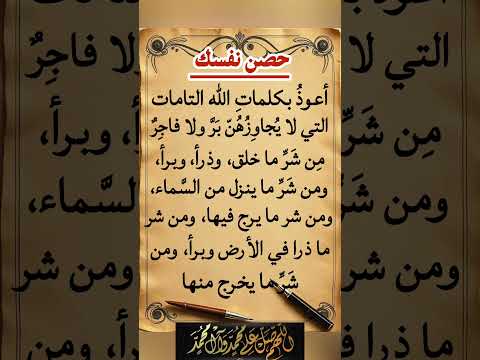 حصن نفسك
أعوذُ بكلماتِ الله التامات
التي لا يُجاوِزُهُنّ بَرَّ ولا فاجِرٌ
مِن شَرِّ ما خلق، وذرأ، وبرأ،
ومن شَرِّ ما ينزل من السَّماء،
ومن شر ما يرج فيها، ومن شر
ما ذرا في الأرض وبرأ، ومن
شَرِّ ما يخرج منها
اللهم صل على محمد وآل محمد